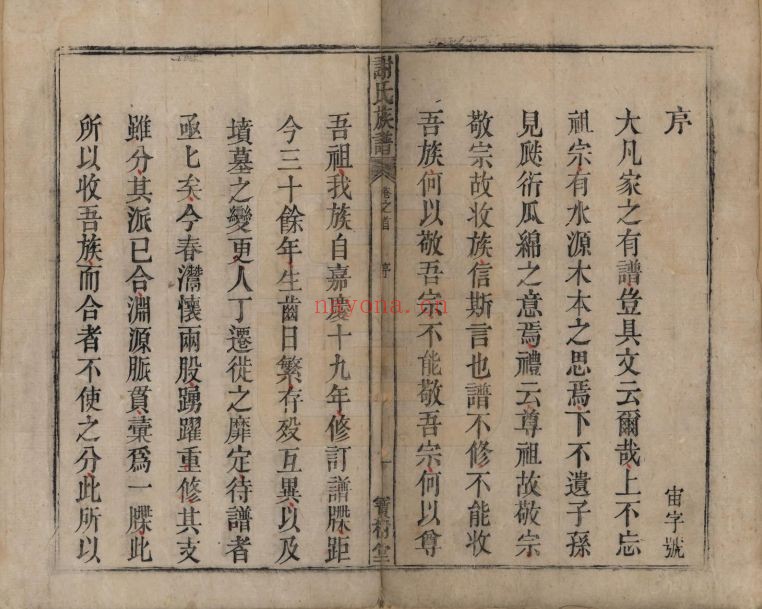 序 宙字號
大凡家之有譜豈具文云爾哉上不忘
祖宗有水源木本之思焉下不遺子孫
見瓞衍瓜綿之意焉禮云尊祖故敬宗
敬宗故收族信斯言也譜不修不能收
吾族何以敬吾宗不能敬吾宗何以尊
謝氏族譜 卷之首 序 一 寶樹堂
吾祖我族自嘉慶十九年修訂譜牒距
今三十餘年生齒日繁存歿互異以及
墳墓之變更人丁遷徙之靡定待譜者
亟亟矣今春灣懷兩股踴躍重修其支
雖分其派已合淵源脈貫彙爲一牒此
所以收吾族而合者不使之分此所以
nayona.cn